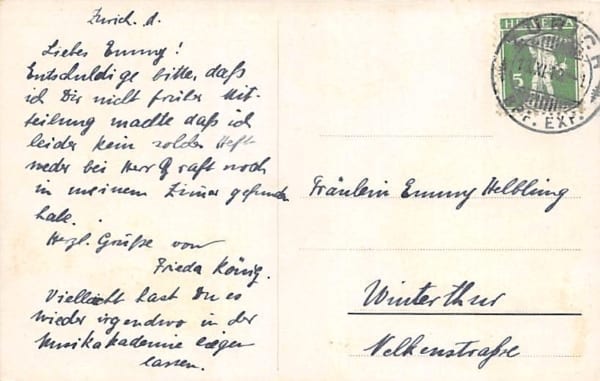 Zürich. d.
Liebes Emmy!
Entschuldige bitte, daß
ich Dir nicht früher Mit-
teilung machte daß ich
leider kein solches Heft
weder bei Herr Graff noch
in meinem Zimmer gefunden
habe.
Herzl. Grüße von
Frieda König.
Vielleicht hast Du es
wieder irgendwo in der
Musikakademie liegen
lassen.
HELVETIA
5
Br. Exp.
Fräulein Emmy Helbling
Winterthur
Nelkenstraße